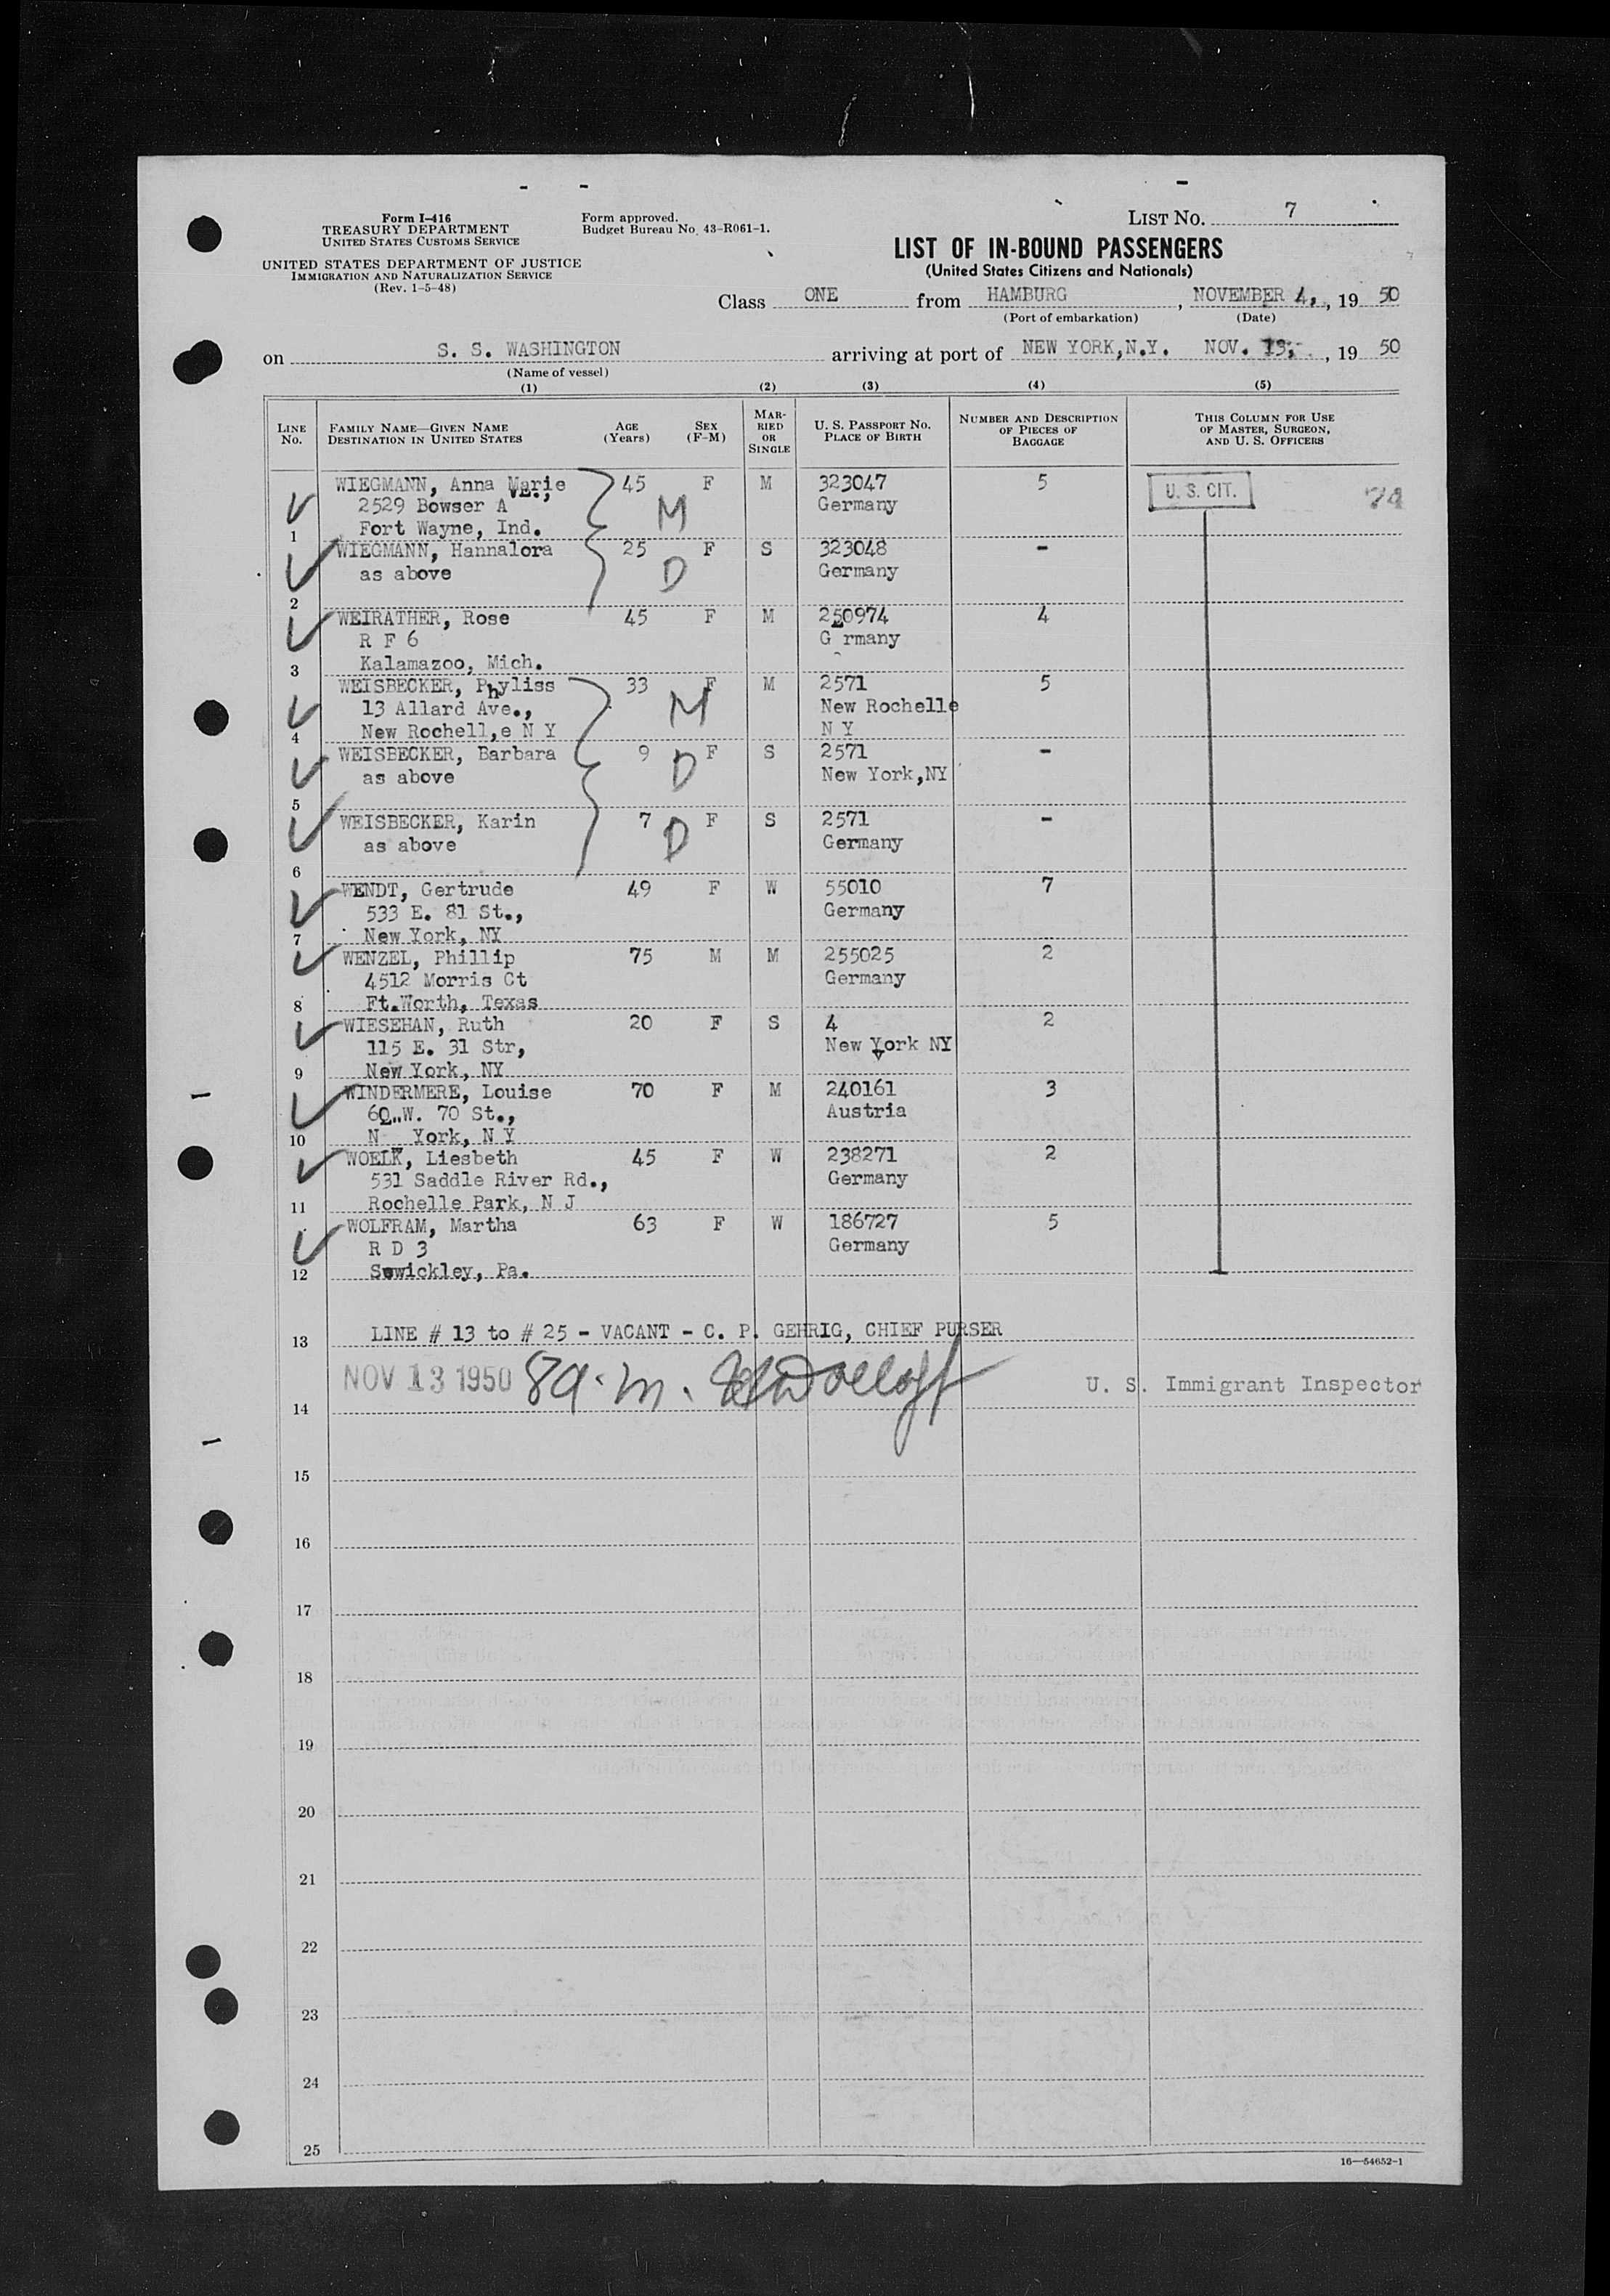 Form I-416
TREASURY DEPARTMENT
UNITED STATES CUSTOMS SERVICE
UNITED STATES DEPARTMENT OF JUSTICE
IMMIGRATION AND NATURALIZATION SERVICE
(Rev. 1-5-48)
Form approved.
Budget Bureau No. 43-R061-1.
LIST NO. 7
LIST OF IN-BOUND PASSENGERS
(United States Citizens and Nationals)
Class ONE from HAMBURG, NOVEMBER 4, , 19 50
(Port of embarkation) (Date)
on S. S. WASHINGTON arriving at port of NEW YORK,N.Y. NOV. 13, , 19 50
(Name of vessel)
(1) (2) (3) (4) (5)
LINE No. FAMILY NAME—GIVEN NAME DESTINATION IN UNITED STATES AGE (Years) SEX (F-M) MARRIED OR SINGLE U. S. PASSPORT NO. PLACE OF BIRTH NUMBER AND DESCRIPTION OF PIECES OF BAGGAGE THIS COLUMN FOR USE OF MASTER, SURGEON, AND U. S. OFFICERS
WIEGMANN, Anna Marie 45 F M 323047 5 U. S. CIT. 74
2529 Bowser Ave., M Germany
1 Fort Wayne, Ind.
WIEGMANN, Hannalora 25 F S 323048 -
as above D Germany
2
WEIRATHER, Rose 45 F M 250974 4
R F 6 G rmany
3 Kalamazoo, Mich.
WEISBECKER, Phyliss 33 F M 2571 5
13 Allard Ave., M New Rochelle
4 New Rochell,e N Y N Y
WEISBECKER, Barbara 9 F S 2571 -
as above D New York,NY
5
WEISBECKER, Karin 7 F S 2571 -
as above D Germany
6
WENDT, Gertrude 49 F W 55010 7
533 E. 81 St., Germany
7 New York, NY
WENZEL, Phillip 75 M M 255025 2
4512 Morris Ct Germany
8 Ft.Worth, Texas
WIESEHAN, Ruth 20 F S 4 2
115 E. 31 Str, New York NY
9 New York, NY
WINDERMERE, Louise 70 F M 240161 3
60 W. 70 St., Austria
10 N York, N Y
WOELK, Liesbeth 45 F W 238271 2
531 Saddle River Rd., Germany
11 Rochelle Park, N J
WOLFRAM, Martha 63 F W 186727 5
R D 3 Germany
12 Sewickley, Pa.
13 LINE # 13 to # 25 - VACANT - C. P. GEHRIG, CHIEF PURSER
NOV 13 1950 U. S. Immigrant Inspector
14
15
16
17
18
19
20
21
22
23
24
25
16—54652-1